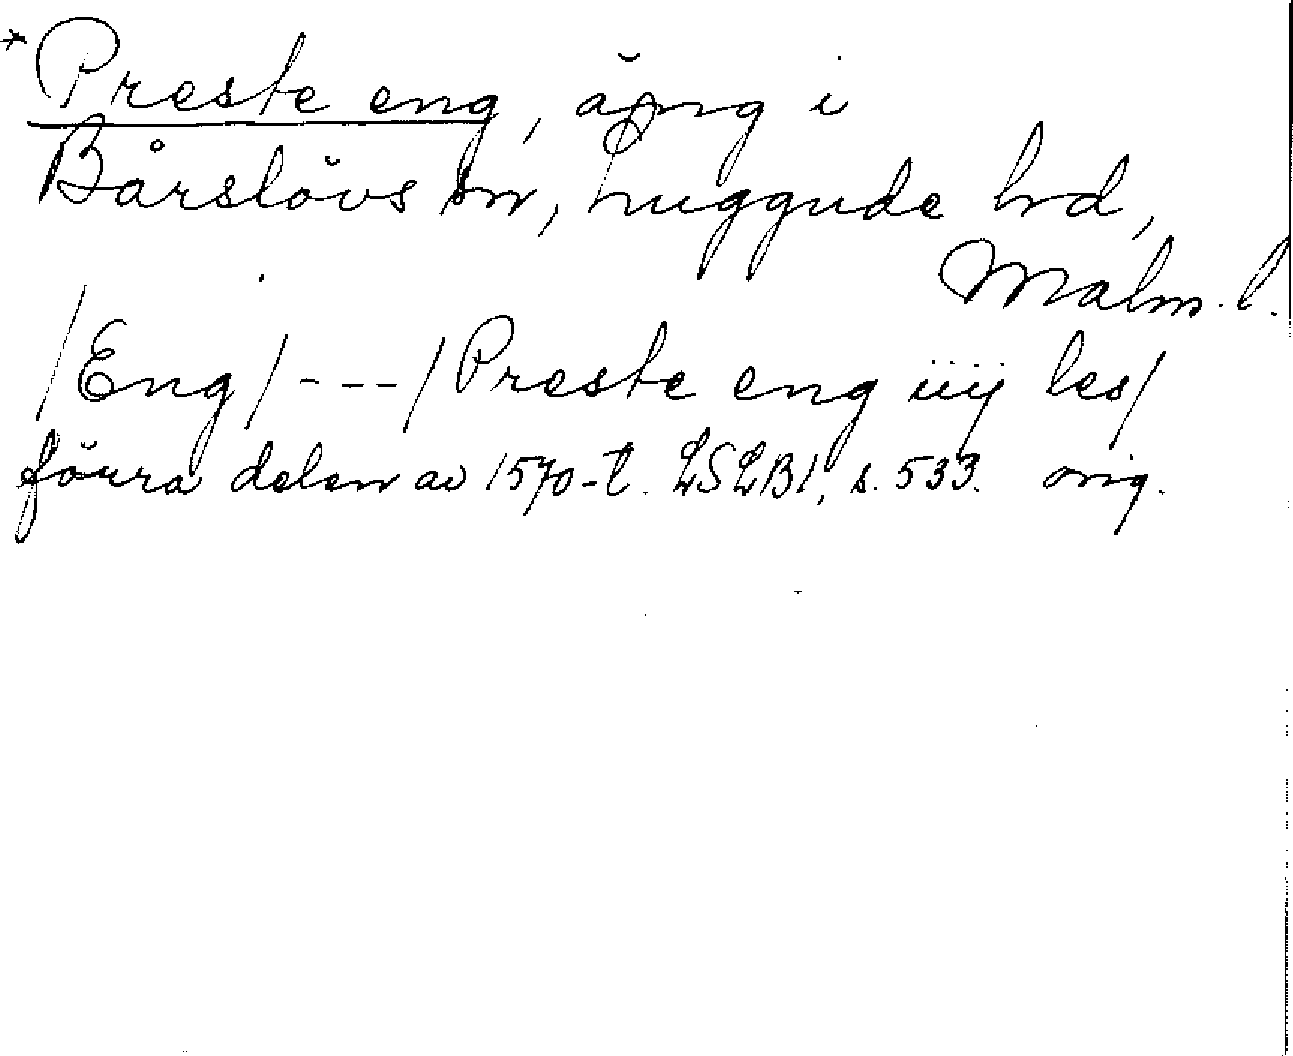 *Preste eng, äng i
Bårslövs sn, Luggude hd,
Malm. l.
/Eng/---/Preste eng iiij les/
förra delen av 1570-t. LSLB1, s. 533. orig.